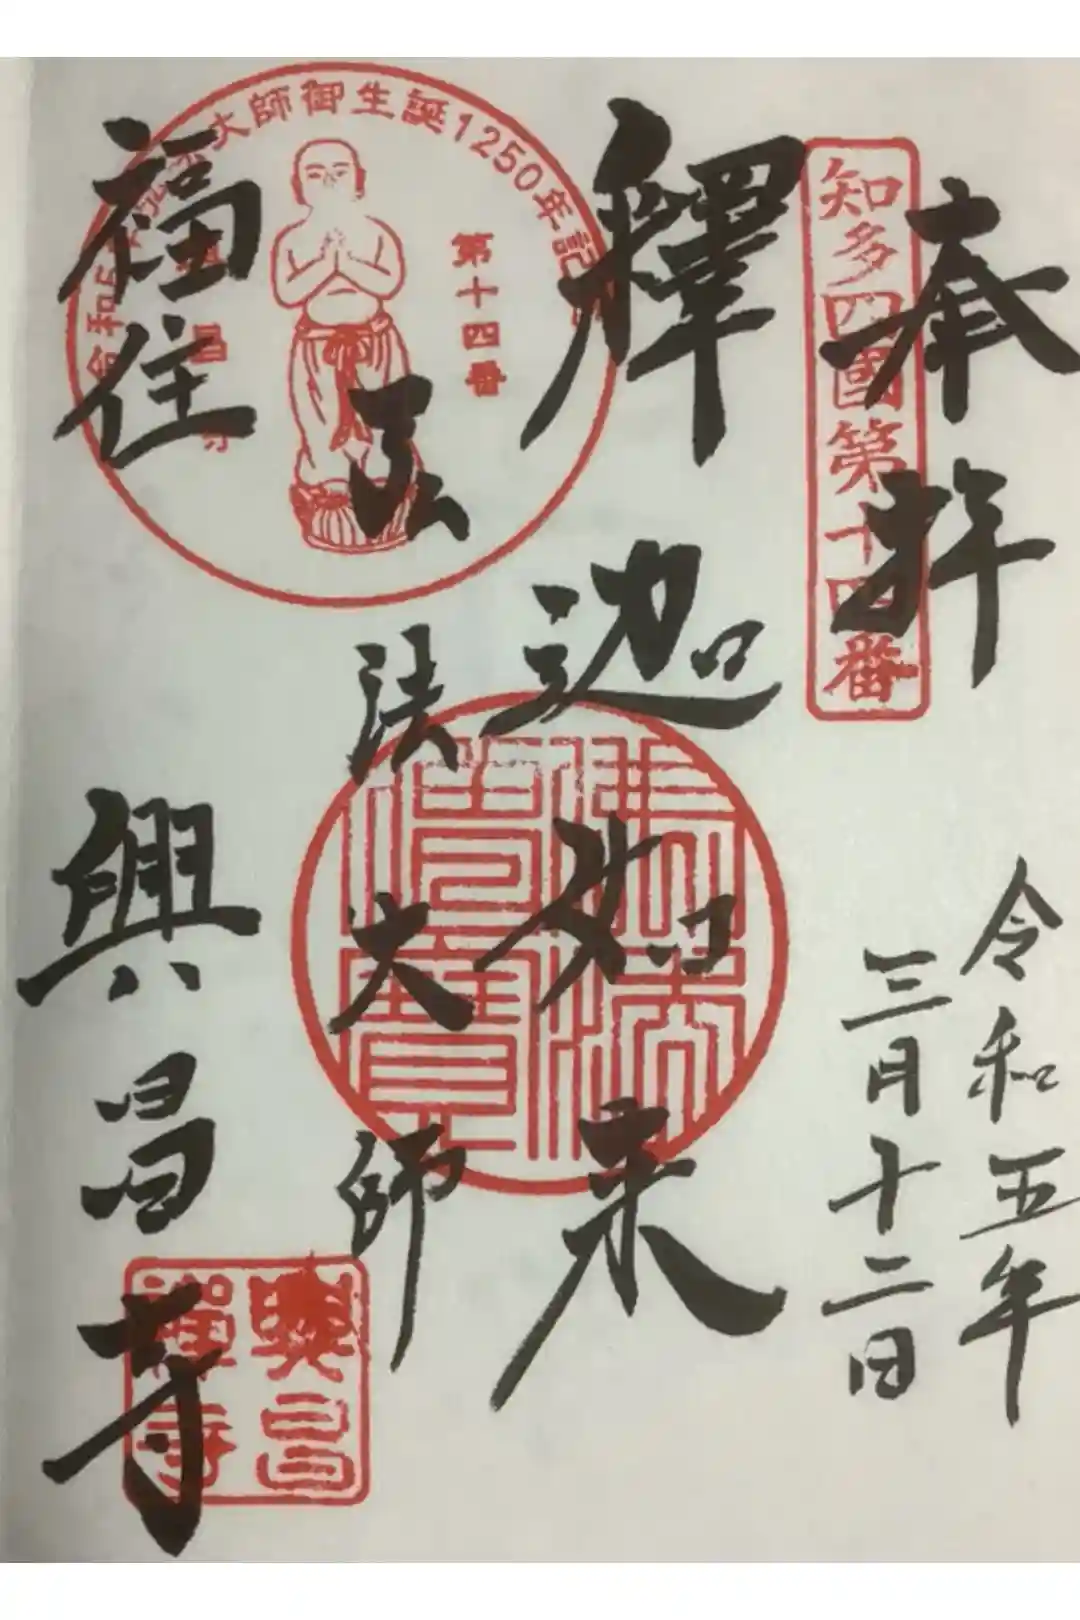 奉拝
知多四國第十四番
令和五年
三月十二日
釋迦如来
弘法大師
弘法大師御生誕1250年記
第十四番
佛法僧寶
福住
興昌寺
興昌
禅寺